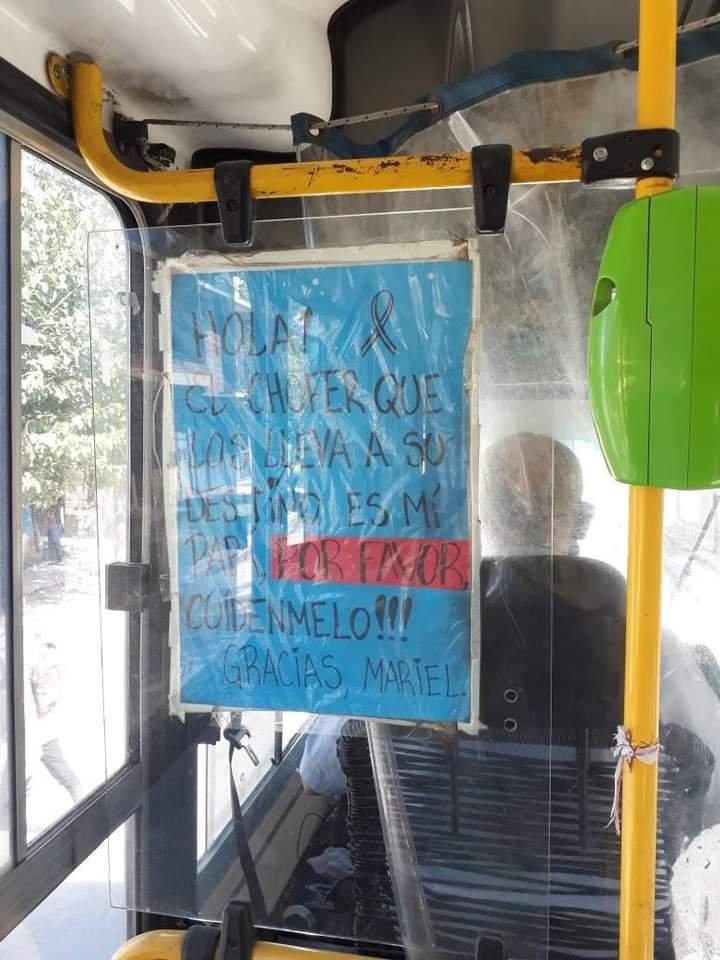 HOLA!
EL CHOFER QUE
LOS LLEVA A SU
DESTINO ES MÍ
PAPÁ, POR FAVOR,
CUÍDENMELO!!!
GRACIAS, MARIEL.